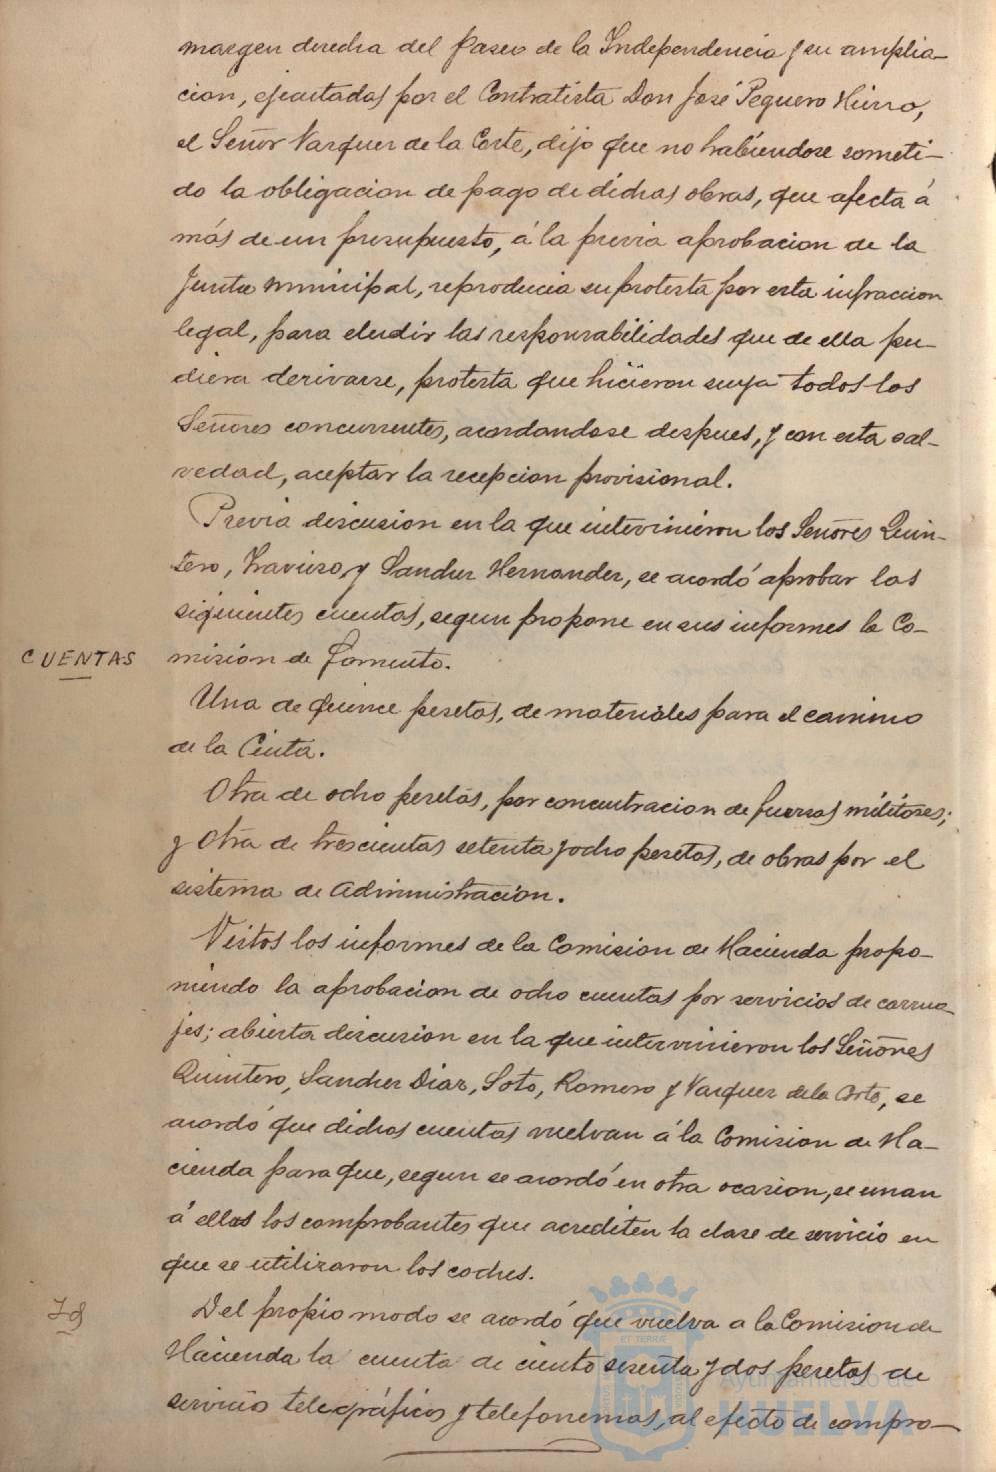 margen derecha del Paseo de la Independencia y su amplia-
cion, ejecutadas por el Contratista Don José Peguero Hierro,
el Señor Vazquez de la Corte, dijo que no habiendose someti-
do la obligacion de pago de dichas obras, que afecta á
más de un presupuesto, á la previa aprobacion de la
Junta municipal, reproducia su protesta por esta infraccion
legal, para eludir las responsabilidades que de ella pu-
diera derivarse, protesta que hicieron suya todos los
Señores concurrentes, acordandose despues, y con esta sal-
vedad, aceptar la recepcion provisional.
Previa discusion en la que intervinieron los Señores Quin-
tero, Travieso, y Sanchez Hernandez, se acordó aprobar las
siguientes cuentas, segun propone en sus informes la Co-
CUENTAS
mision de Fomento.
Una de quince pesetas, de materiales para el camino
de la Cinta.
Otra de ocho pesetas, por concentracion de fuerzas militares;
y otra de trescientas setenta y ocho pesetas, de obras por el
sistema de Administracion.
Vistos los informes de la Comision de Hacienda propo-
niendo la aprobacion de ocho cuentas por servicios de carrua-
jes; abierta discusion en la que intervinieron los Señores
Quintero, Sanchez Diaz, Soto, Romero y Vazquez de la Corte, se
acordó que dichas cuentas vuelvan á la Comision de Ha-
cienda para que, segun se acordó en otra ocasion, se unan
á ellas los comprobantes que acrediten la clase de servicio en
que se utilizaron los coches.
Id
Del propio modo se acordó que vuelva a la Comision de
Hacienda la cuenta de ciento sesenta y dos pesetas de
servicios telegráficos y telefonemas, al efecto de compro-
Ayuntamiento de
HUELVA